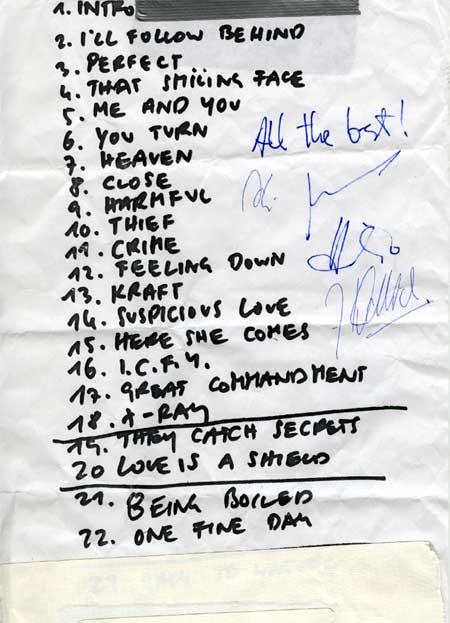 1. INTRO
2. I'LL FOLLOW BEHIND
3. PERFECT
4. THAT SMILING FACE
5. ME AND YOU
6. YOU TURN
7. HEAVEN
8. CLOSE
9. HARMFUL
10. THIEF
11. CRIME
12. FEELING DOWN
13. KRAFT
14. SUSPICIOUS LOVE
15. HERE SHE COMES
16. I.C.F.Y.
17. GREAT COMMANDMENT
18. X-RAY
19. THEY CATCH SECRETS
20 LOVE IS A SHIELD
21. BEING BOILED
22. ONE FINE DAY
All the best!